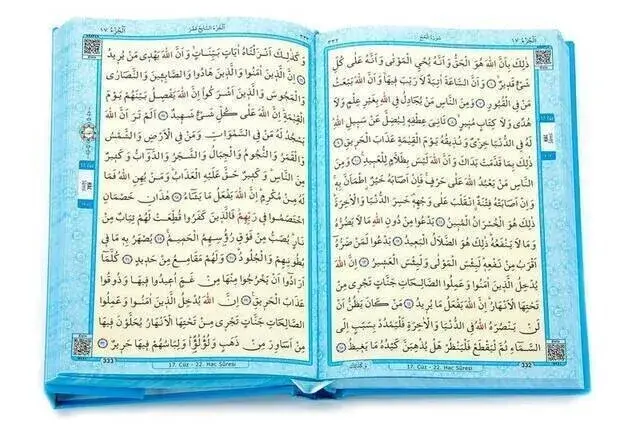 اَلْجُزْءُ ١٧
سُورَةُ الْحَجِّ
٣٣٢
ذٰلِكَ بِاَنَّ اللّٰهَ هُوَ الْحَقُّ وَاَنَّهُ يُحْيِ الْمَوْتٰى وَاَنَّهُ عَلٰى كُلِّ
شَيْءٍ قَدِيرٌ ۞ وَاَنَّ السَّاعَةَ اٰتِيَةٌ لَا رَيْبَ فِيهَا وَاَنَّ اللّٰهَ يَبْعَثُ
مَنْ فِي الْقُبُورِ ۞ وَمِنَ النَّاسِ مَنْ يُجَادِلُ فِي اللّٰهِ بِغَيْرِ عِلْمٍ وَلَا
هُدًى وَلَا كِتَابٍ مُنِيرٍ ۞ ثَانِيَ عِطْفِهِ لِيُضِلَّ عَنْ سَبِيلِ اللّٰهِ
لَهُ فِي الدُّنْيَا خِزْيٌ وَنُذِيقُهُ يَوْمَ الْقِيٰمَةِ عَذَابَ الْحَرِيقِ ۞
ذٰلِكَ بِمَا قَدَّمَتْ يَدَاكَ وَاَنَّ اللّٰهَ لَيْسَ بِظَلَّامٍ لِلْعَبِيدِ ۞ وَمِنَ
النَّاسِ مَنْ يَعْبُدُ اللّٰهَ عَلٰى حَرْفٍ فَاِنْ اَصَابَهُ خَيْرٌ اطْمَاَنَّ بِهِ
وَاِنْ اَصَابَتْهُ فِتْنَةٌ انْقَلَبَ عَلٰى وَجْهِهِ خَسِرَ الدُّنْيَا وَالْاٰخِرَةَ
ذٰلِكَ هُوَ الْخُسْرَانُ الْمُبِينُ ۞ يَدْعُوا مِنْ دُونِ اللّٰهِ مَا لَا يَضُرُّهُ
وَمَا لَا يَنْفَعُهُ ذٰلِكَ هُوَ الضَّلَالُ الْبَعِيدُ ۞ يَدْعُوا لَمَنْ ضَرُّهُ
اَقْرَبُ مِنْ نَفْعِهِ لَبِئْسَ الْمَوْلٰى وَلَبِئْسَ الْعَشِيرُ ۞ اِنَّ اللّٰهَ
يُدْخِلُ الَّذِينَ اٰمَنُوا وَعَمِلُوا الصَّالِحَاتِ جَنَّاتٍ تَجْرِي مِنْ
تَحْتِهَا الْاَنْهَارُ اِنَّ اللّٰهَ يَفْعَلُ مَا يُرِيدُ ۞ مَنْ كَانَ يَظُنُّ اَنْ
لَنْ يَنْصُرَهُ اللّٰهُ فِي الدُّنْيَا وَالْاٰخِرَةِ فَلْيَمْدُدْ بِسَبَبٍ اِلَى
السَّمَاءِ ثُمَّ لْيَقْطَعْ فَلْيَنْظُرْ هَلْ يُذْهِبَنَّ كَيْدُهُ مَا يَغِيظُ ۞
وَكَذٰلِكَ
17. Cüz - 22. Hac Sûresi
332
اَلْجُزْءُ السَّابِعُ عَشَرَ
اَلْجُزْءُ ١٧
وَكَذٰلِكَ اَنْزَلْنَاهُ اٰيَاتٍ بَيِّنَاتٍ وَاَنَّ اللّٰهَ يَهْدِي مَنْ يُرِيدُ
۞ اِنَّ الَّذِينَ اٰمَنُوا وَالَّذِينَ هَادُوا وَالصَّابِئِينَ وَالنَّصَارٰى
وَالْمَجُوسَ وَالَّذِينَ اَشْرَكُوا اِنَّ اللّٰهَ يَفْصِلُ بَيْنَهُمْ يَوْمَ
الْقِيٰمَةِ اِنَّ اللّٰهَ عَلٰى كُلِّ شَيْءٍ شَهِيدٌ ۞ اَلَمْ تَرَ اَنَّ اللّٰهَ
يَسْجُدُ لَهُ مَنْ فِي السَّمٰوَاتِ وَمَنْ فِي الْاَرْضِ وَالشَّمْسُ
وَالْقَمَرُ وَالنُّجُومُ وَالْجِبَالُ وَالشَّجَرُ وَالدَّوَابُّ وَكَثِيرٌ
مِنَ النَّاسِ وَكَثِيرٌ حَقَّ عَلَيْهِ الْعَذَابُ وَمَنْ يُهِنِ اللّٰهُ فَمَا
لَهُ مِنْ مُكْرِمٍ اِنَّ اللّٰهَ يَفْعَلُ مَا يَشَاءُ ۞ هٰذَانِ خَصْمَانِ
اخْتَصَمُوا فِي رَبِّهِمْ فَالَّذِينَ كَفَرُوا قُطِّعَتْ لَهُمْ ثِيَابٌ مِنْ
نَارٍ يُصَبُّ مِنْ فَوْقِ رُؤُسِهِمُ الْحَمِيمُ ۞ يُصْهَرُ بِهِ مَا فِي
بُطُونِهِمْ وَالْجُلُودُ ۞ وَلَهُمْ مَقَامِعُ مِنْ حَدِيدٍ ۞ كُلَّمَا
اَرَادُوا اَنْ يَخْرُجُوا مِنْهَا مِنْ غَمٍّ اُعِيدُوا فِيهَا وَذُوقُوا
عَذَابَ الْحَرِيقِ ۞ اِنَّ اللّٰهَ يُدْخِلُ الَّذِينَ اٰمَنُوا وَعَمِلُوا
الصَّالِحَاتِ جَنَّاتٍ تَجْرِي مِنْ تَحْتِهَا الْاَنْهَارُ يُحَلَّوْنَ فِيهَا
مِنْ اَسَاوِرَ مِنْ ذَهَبٍ وَلُؤْلُؤًا وَلِبَاسُهُمْ فِيهَا حَرِيرٌ ۞
17. Cüz - 22. Hac Sûresi
333